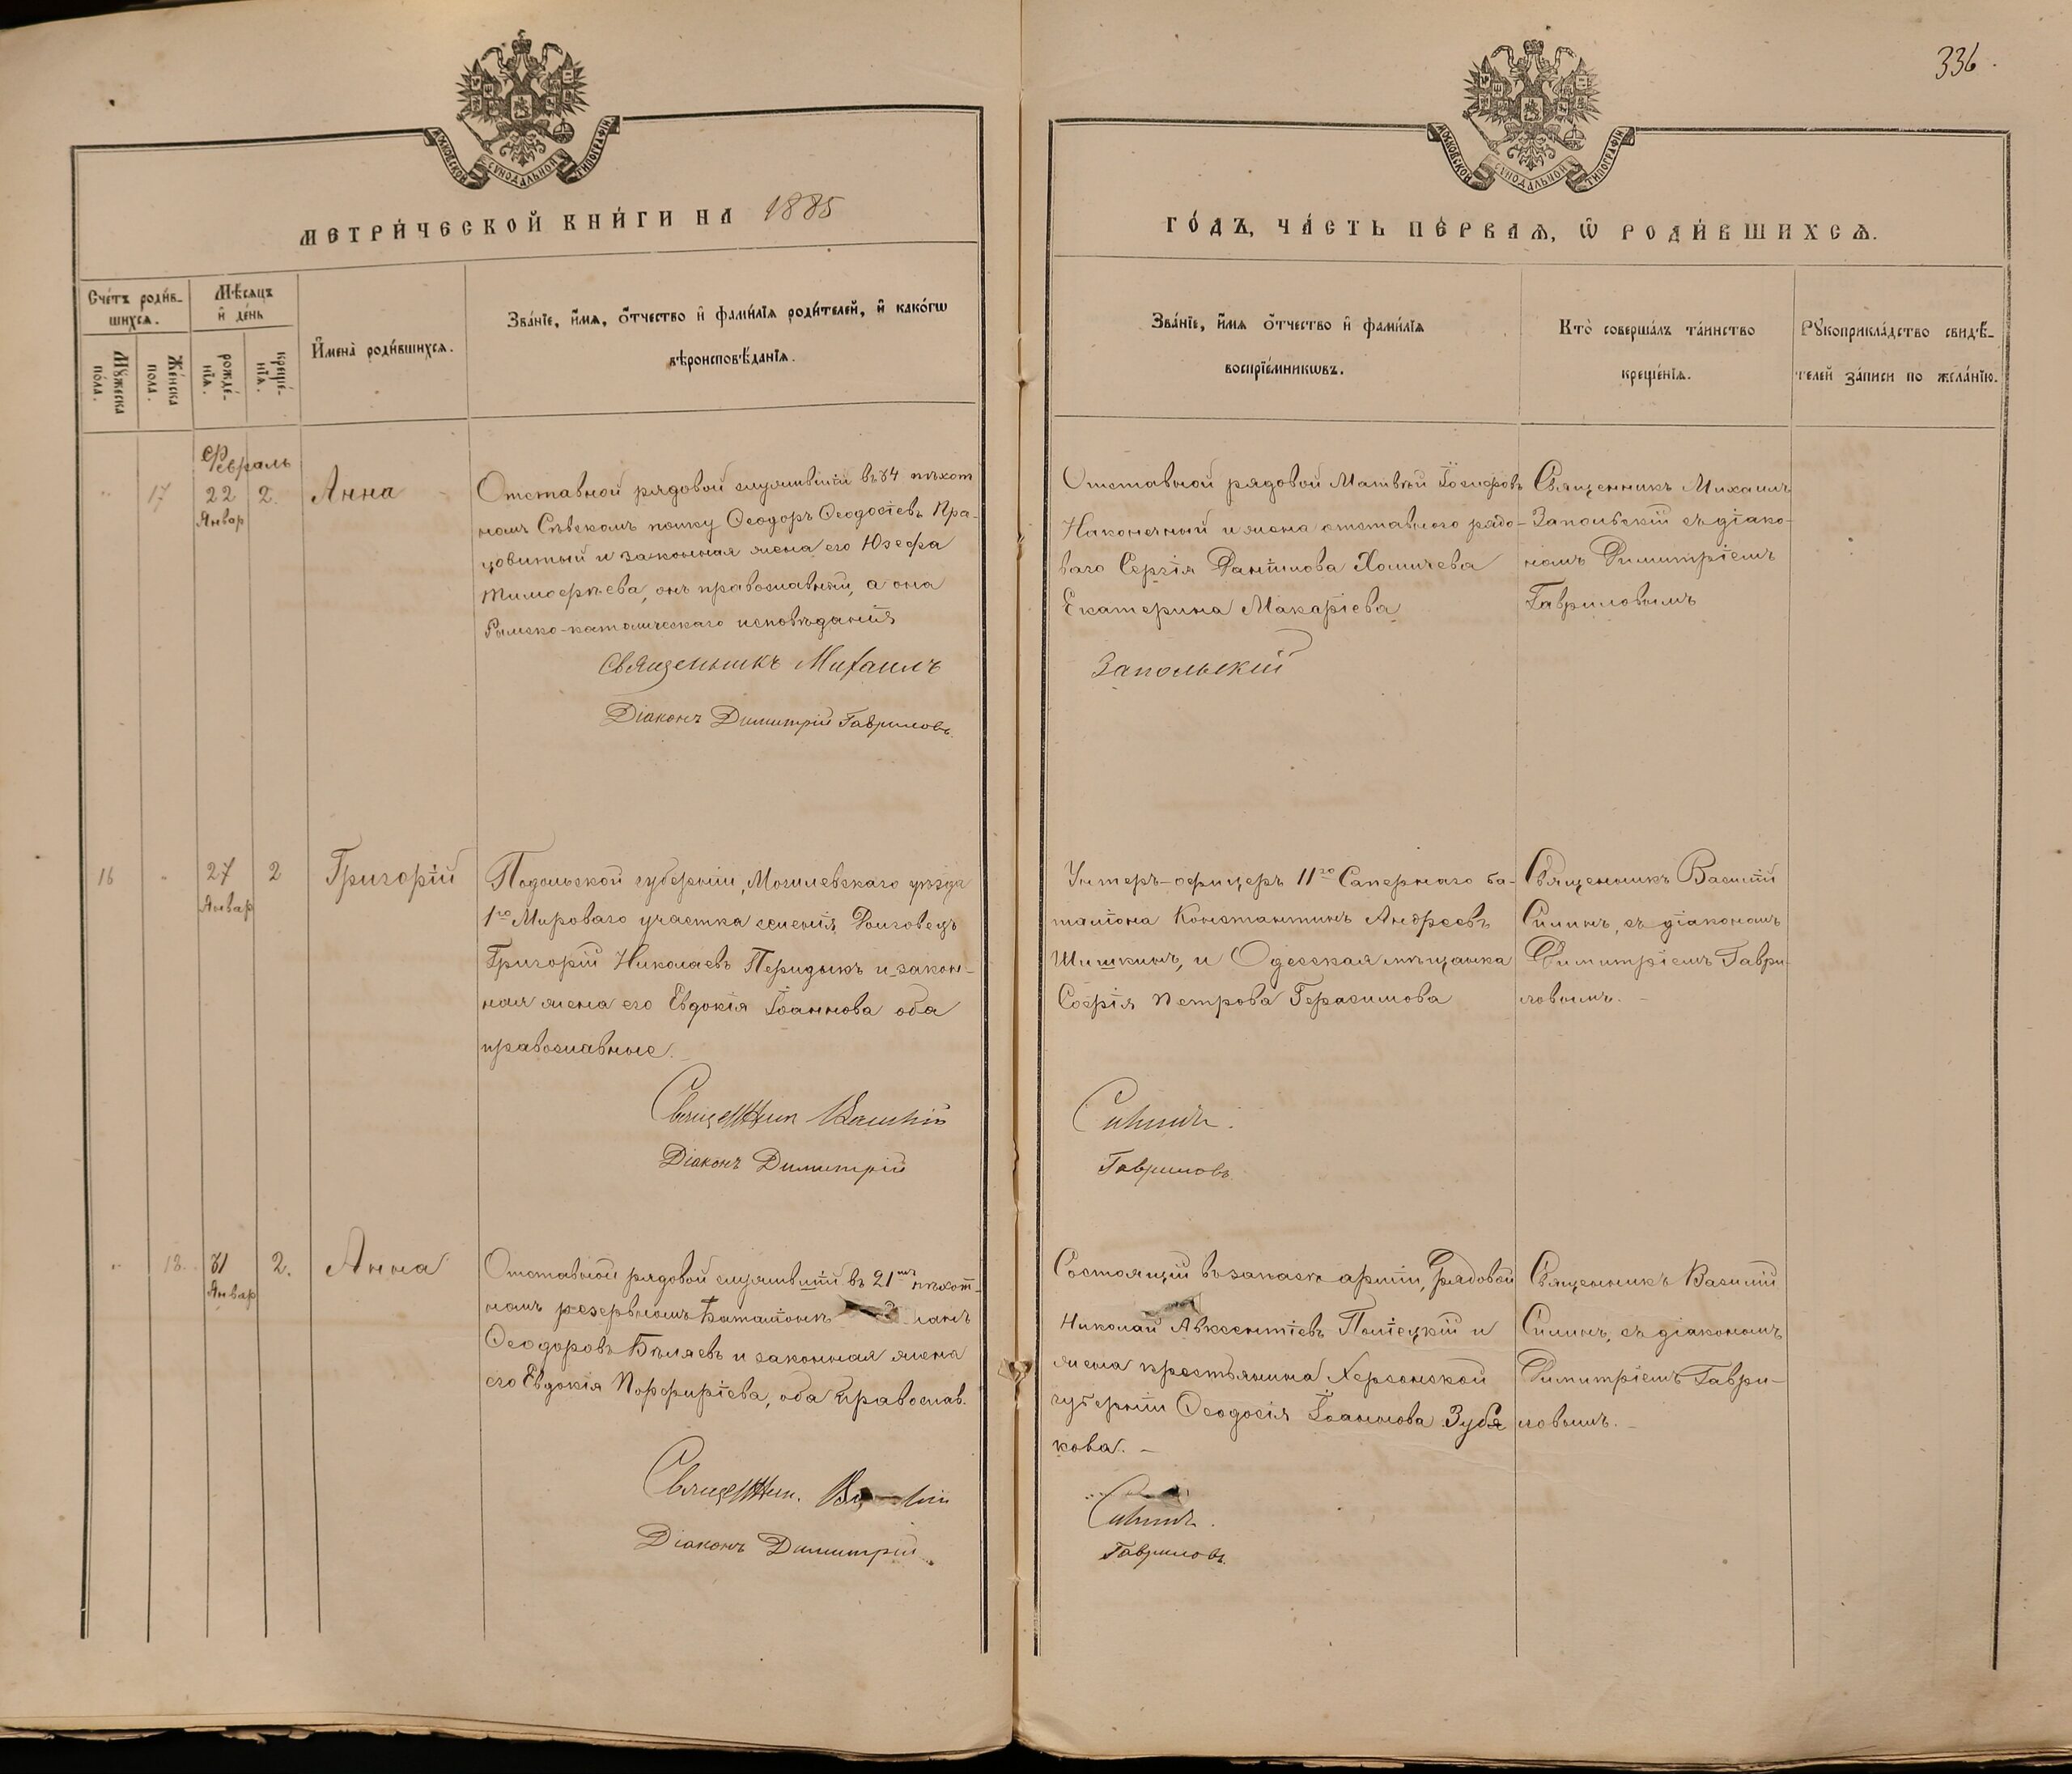 336.
МОСКОВСКОЙ СѴНОДАЛЬНОЙ ТИПОГРАФІИ
МОСКОВСКОЙ СѴНОДАЛЬНОЙ ТИПОГРАФІИ
МЕТРИ́ЧЕСКОЙ КНИ́ГИ НА 1885
ГО́ДЪ, ЧА́СТЬ ПЕ́РВАѦ, Ѿ РОДИ́ВШИХСѦ.
Сче́тъ роди́в-
шихсѧ.
Мѣ́сѧцъ
и҆ де́нь
Мꙋ́жеска
по́ла.
Же́нска
пола.
рожде́-
нїѧ.
креще́-
нїѧ.
И҆мена̀ роди́вшихсѧ.
Зва́нїе, и҆́мѧ, ѻ҆́тчество и҆ фами́лїѧ роди́телей, и҆ како́гѡ
вѣроисповѣ́данїѧ.
Зва́нїе, и҆́мѧ ѻ҆́тчество и҆ фами́лїѧ
воспрїе́мникѡвъ.
Кто̀ соверша́лъ та́инство
креще́нїѧ.
Рꙋкоприкла́дство свидѣ́-
телей за́писи по жела́нїю.
Февраль
17
22 2.
Январ
Анна
Отставной рядовой служившій въ 34 пѣхот
номъ Сѣвскомъ полку Ѳеодоръ Ѳеодосіевъ Пра-
цовитый и законная жена его Юзефа
Тимоѳеева, онъ православный, а она
Римско-католическаго исповѣданія
Священникъ Михаилъ
Діаконъ Димитрій Гавриловъ.
Отставной рядовой Матвѣй Іосифовъ
Наконечный и жена отставного рядо-
ваго Сергія Даніилова Хомичева
Екатерина Макаріева
Запольскій
Священникъ Михаилъ
Запольскій съ діако-
номъ Димитріемъ
Гавриловымъ
16
27 2
Январ
Григорій
Подольской губерніи, Могилевскаго уѣзда
1го Мироваго участка селенія Долговецъ
Григорій Николаевъ Перидыкъ и закон-
ная жена его Евдокія Іоаннова оба
православные.
Священник Василій
Діаконъ Димитрій
Унтеръ-офицеръ 11го Сапернаго ба-
таліона Константинъ Андреевъ
Шишкинъ, и Одесская мѣщанка
Софія Петрова Герасимова
Силинъ.
Гавриловъ
Священникъ Василій
Силинъ, съ діакономъ
Димитріемъ Гаври-
ловымъ.
18.
31 2.
Январ
Анна
Отставной рядовой служившій въ 21мъ пѣхот-
номъ резервномъ баталіонѣ
Ѳеодоровъ Бѣляевъ и законная жена
его Евдокія Порфиріева, оба православ.
Священник.
Діаконъ Димитрій
Состоящій въ запасѣ арміи, рядовой
Николай Авксентіевъ Поліецкій и
жена крестьянина Херсонской
губерніи Ѳеодосія Іоаннова Зубя
кова. -
Силинъ.
Гавриловъ.
Священникъ Василій
Силинъ, съ діакономъ
Димитріемъ Гаври-
ловымъ. -